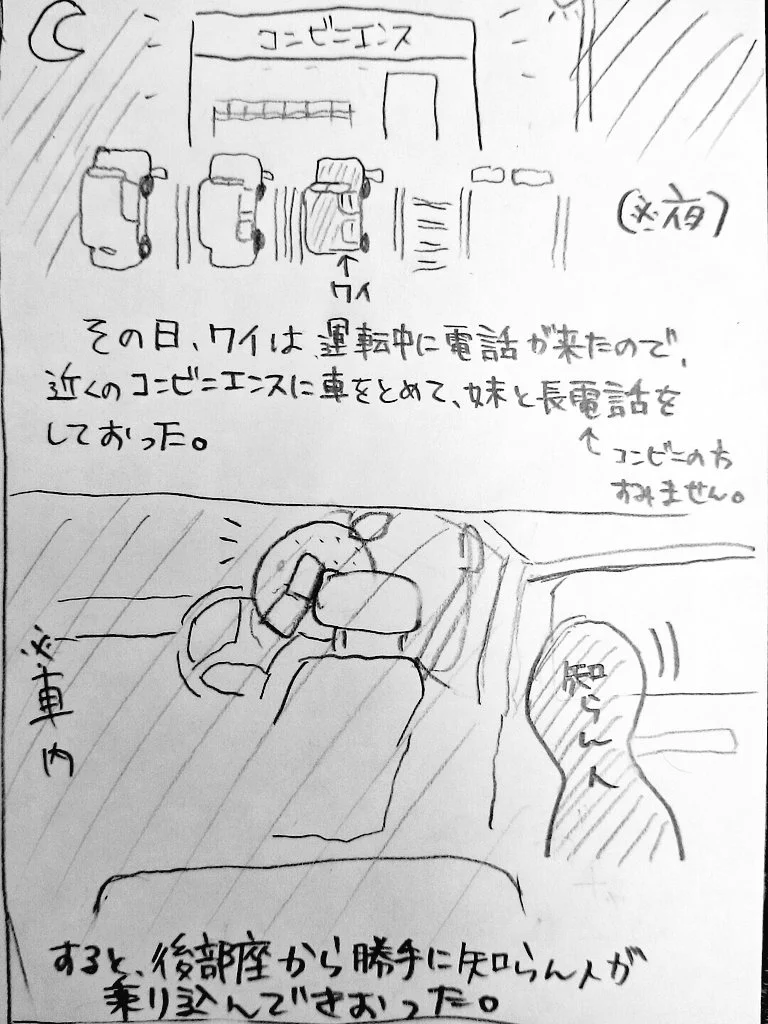 コンビニエンス
(※夜)
↑
ワイ
その日、ワイは運転中に電話が来たので、
近くのコンビニエンスに車をとめて、妹と長電話を
しておった。
↑
コンビニの方
すみません。
※車内
知らん人
すると、後部座から勝手に知らん人が
乗り込んできおった。